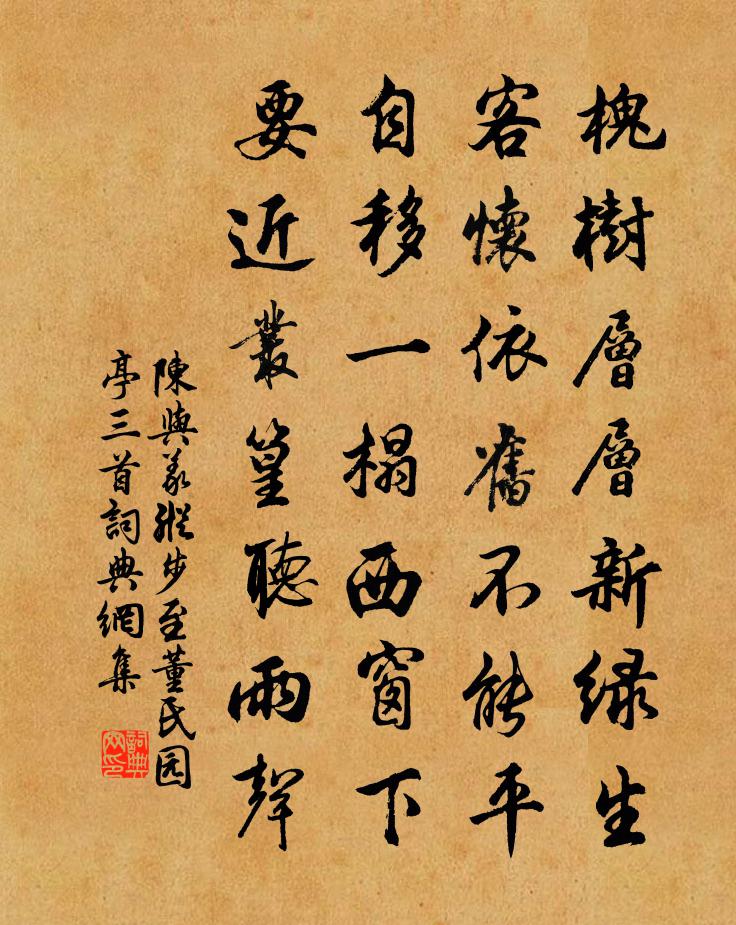 槐樹層層新緑生
客懷依舊不能平
自移一榻西窗下
要近叢篁聽雨聲
陳與義縱步至董氏园
亭三首詞典網集
詞典网印